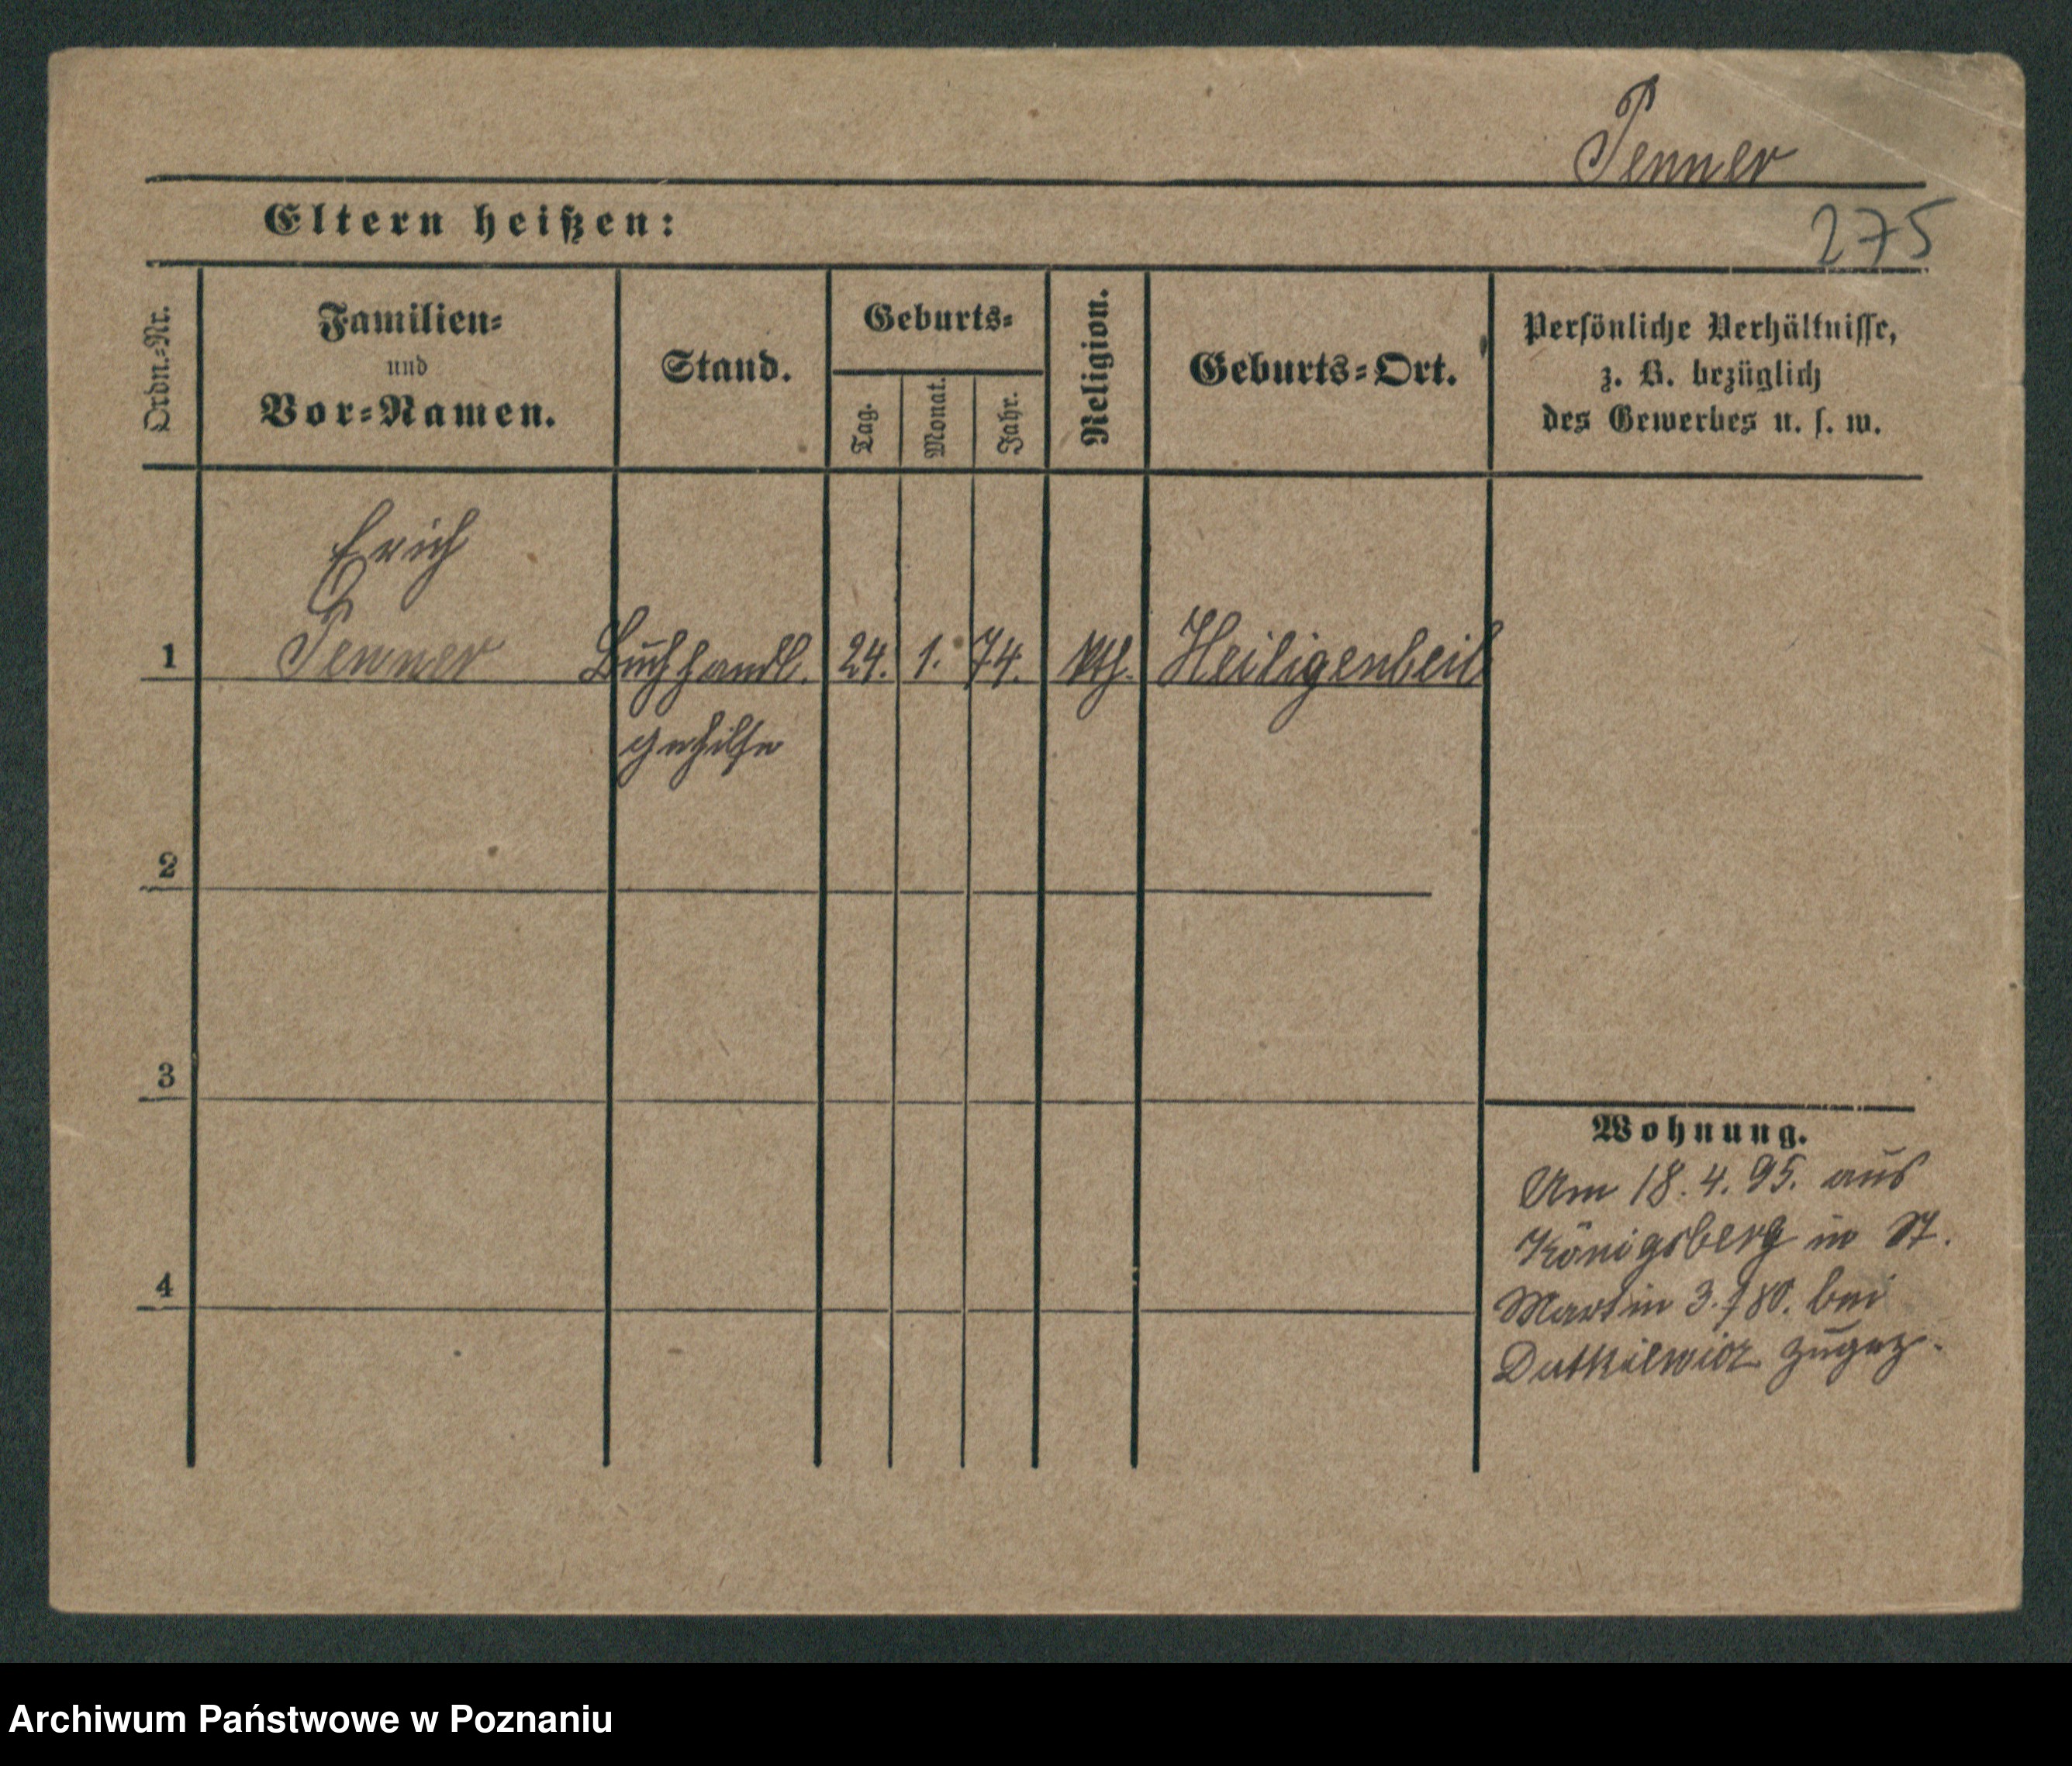 Penner
Eltern heißen:
275
Ordn.-Nr.
Familien-
und
Vor-Namen.
Stand.
Geburts-
Tag.
Monat.
Jahr.
Religion.
Geburts-Ort.
Persönliche Verhältnisse,
z. B. bezüglich
des Gewerbes u. s. w.
Erich
1 Penner Buchhandl. 24. 1. 74. kth. Heiligenbeil
gehilfe
2
3
4
Wohnung.
Am 18. 4. 95. aus
Königsberg in St.
Martin 3. bei
Dutkiewicz zugez.
Archiwum Państwowe w Poznaniu